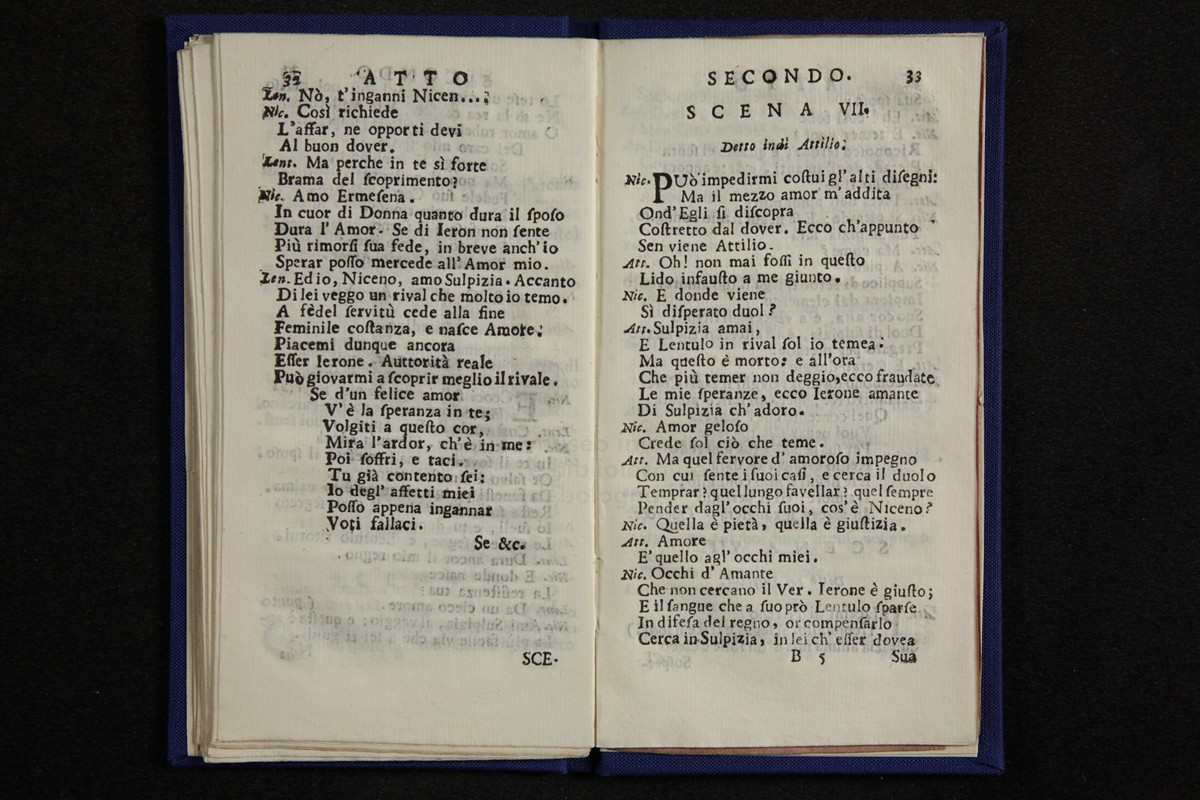 32 ATTO
Len. Nò, t'inganni Nicen...;
Nic. Così richiede
L'affar, ne opporti devi
Al buon dover.
Lent. Ma perche in te sì forte
Brama del ſcoprimento?
Nic. Amo Ermeſena.
In cuor di Donna quanto dura il ſpoſo
Dura l'Amor. Se di Ieron non ſente
Più rimorſi ſua fede, in breve anch'io
Sperar poſſo mercede all'Amor mio.
Len. Ed io, Niceno, amo Sulpizia. Accanto
Di lei veggo un rival che molto io temo.
A fedel ſervitù cede alla fine
Feminile coſtanza, e naſce Amore;
Piacemi dunque ancora
Eſſer Ierone. Auttorità reale
Può giovarmi a ſcoprir meglio il rivale.
Se d'un felice amor
V'è la ſperanza in te;
Volgiti a queſto cor,
Mira l'ardor, ch'è in me:
Poi ſoffri, e taci.
Tu già contento ſei:
Io degl' affetti miei
Poſſo appena ingannar
Voti fallaci.
Se &c.
SCE-
SECONDO. 33
SCENA VII.
Detto indi Attilio.
Nic. PUò impedirmi coſtui gl'alti diſegni:
Ma il mezzo amor m'addita
Ond'Egli ſi diſcopra
Coſtretto dal dover. Ecco ch'appunto
Sen viene Attilio.
Att. Oh! non mai foſſi in queſto
Lido infauſto a me giunto.
Nic. E donde viene
Sì diſperato duol?
Att. Sulpizia amai,
E Lentulo in rival ſol io temea:
Ma queſto è morto: e all'ora
Che più temer non deggio, ecco fraudate
Le mie ſperanze, ecco Ierone amante
Di Sulpizia ch'adoro.
Nic. Amor geloſo
Crede ſol ciò che teme.
Att. Ma quel fervore d'amoroſo impegno
Con cui ſente i ſuoi caſi, e cerca il duolo
Temprar? quel lungo favellar? quel ſempre
Pender dagl'occhi ſuoi, cos'è Niceno?
Nic. Quella è pietà, quella è giuſtizia.
Att. Amore
E' quello agl'occhi miei.
Nic. Occhi d'Amante
Che non cercano il Ver. Ierone è giuſto;
E il ſangue che a ſuo prò Lentulo ſparſe
In difeſa del regno, or compenſarlo
Cerca in Sulpizia, in lei ch'eſſer dovea
B 5 Sua